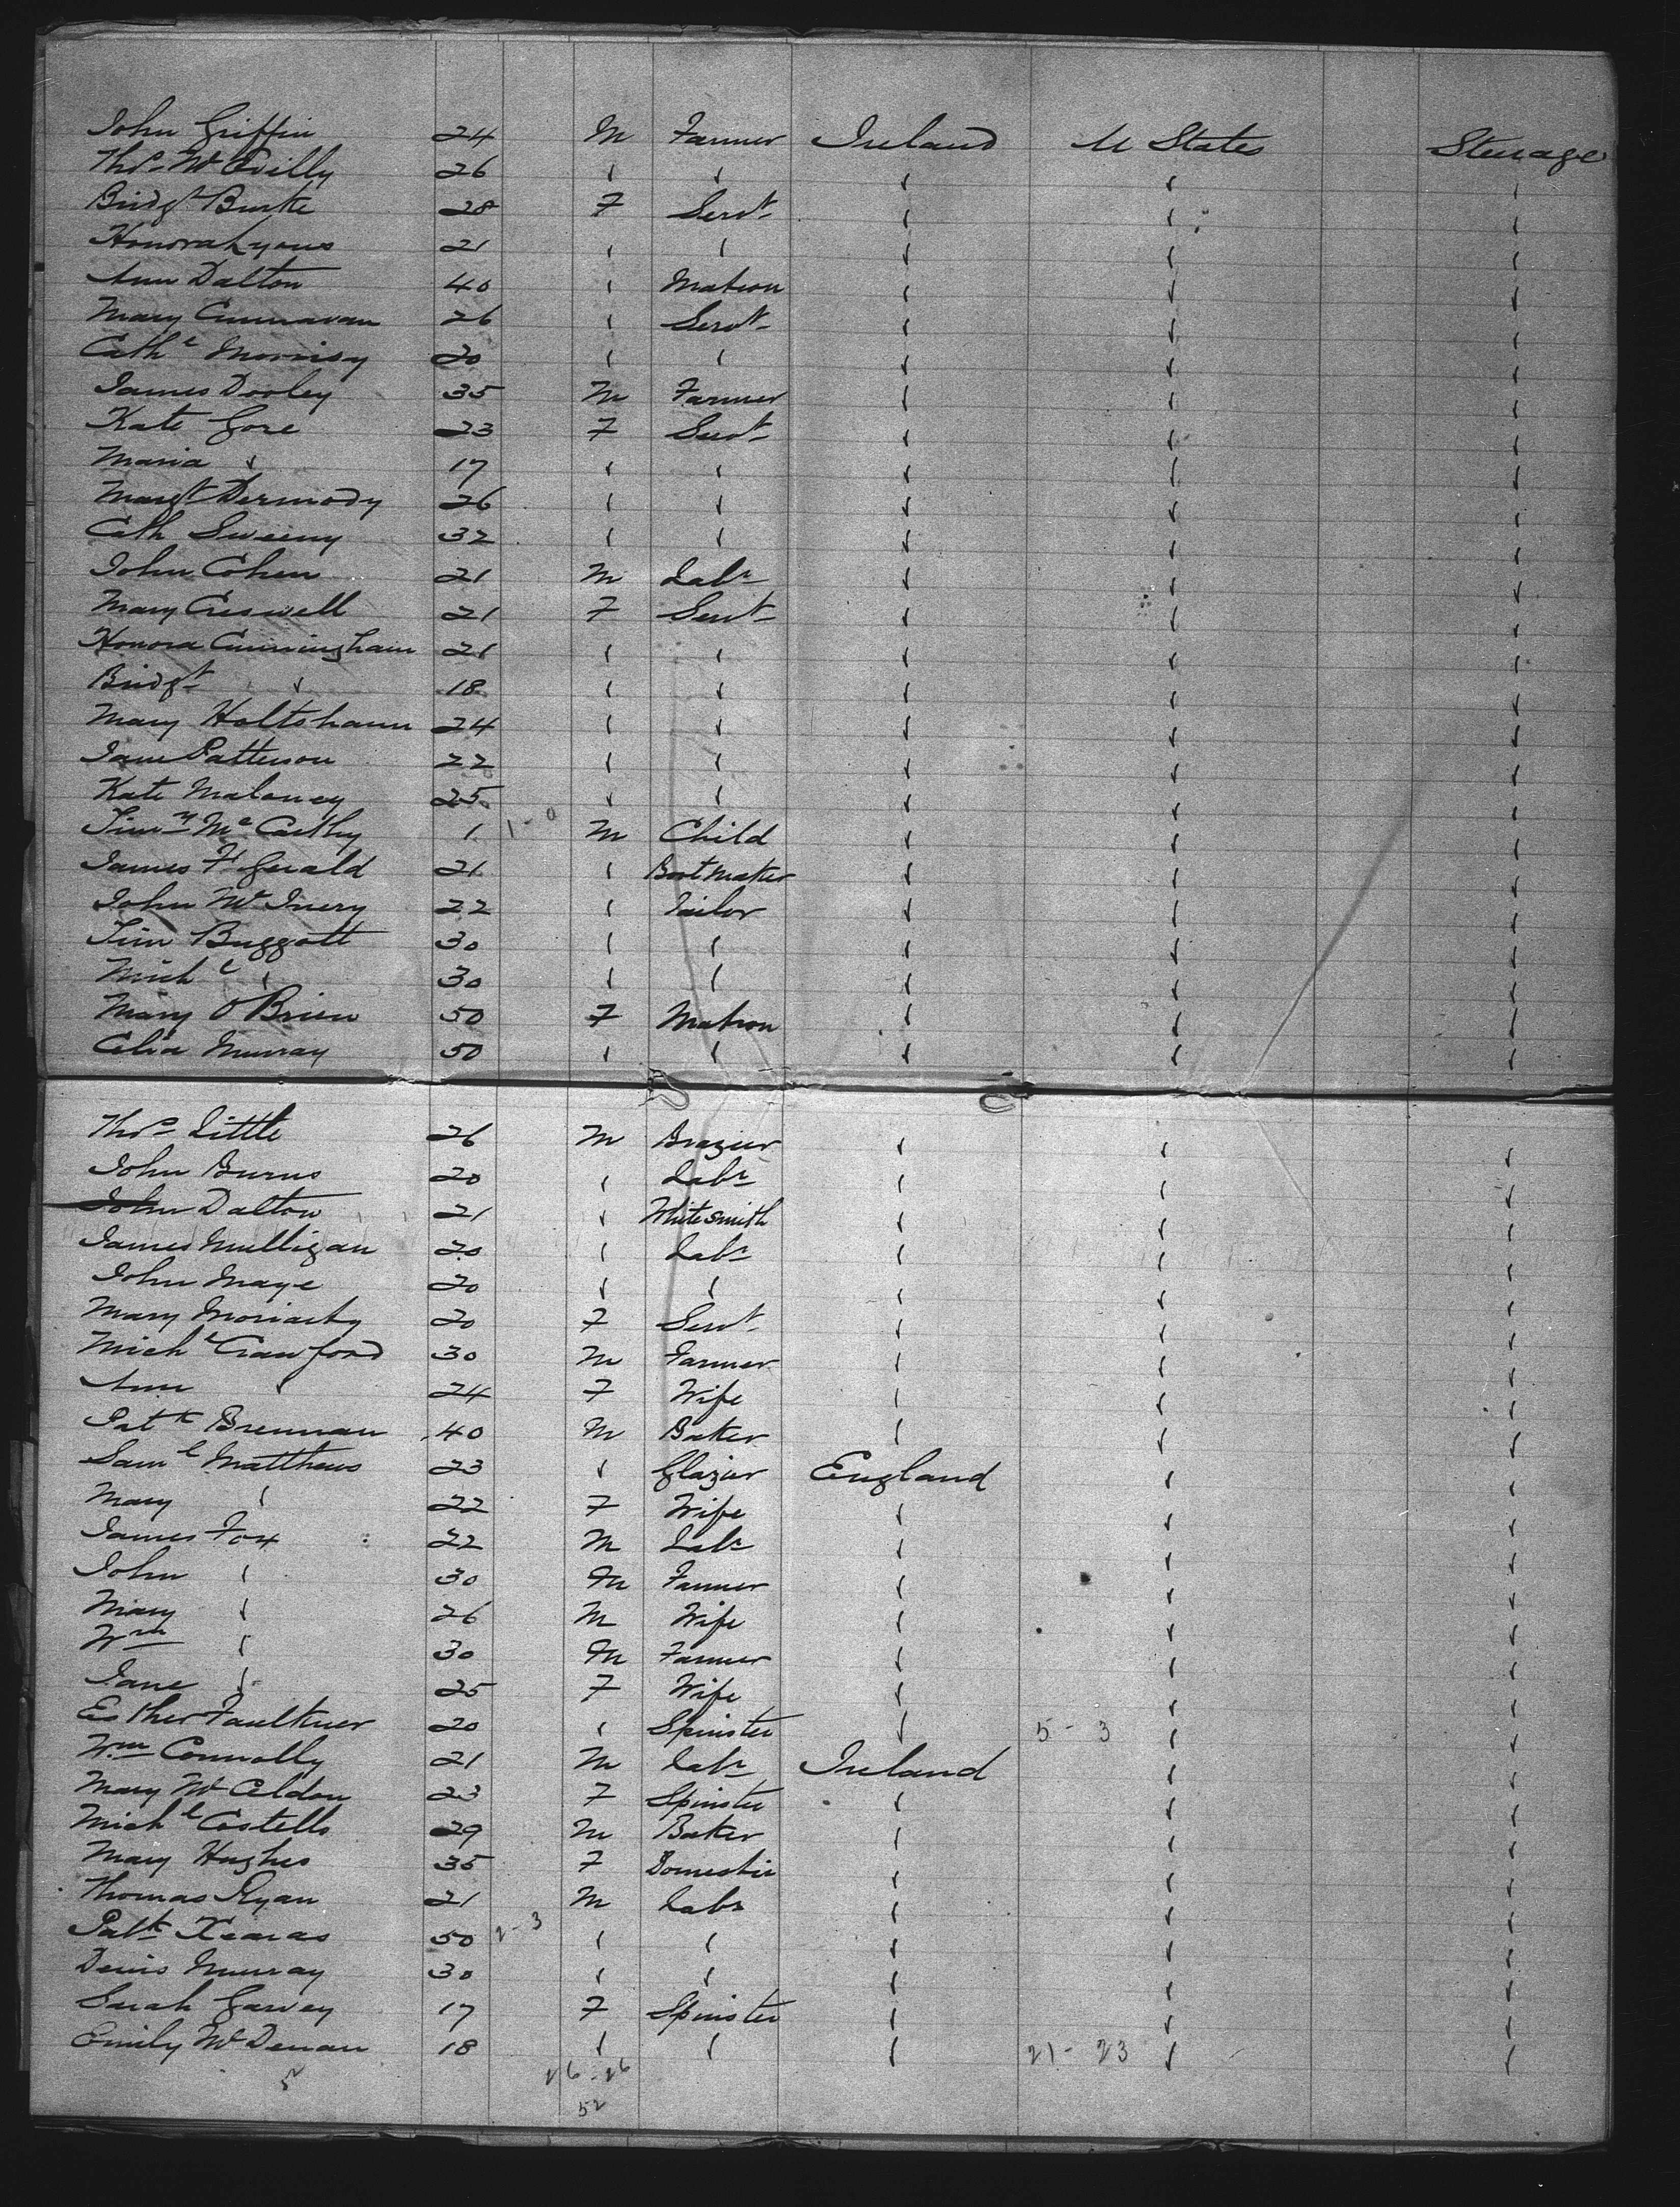 John Griffin 24 M Farmer Ireland U States Steerage
Thos McEvilly 26 " " " " "
Bridgt Burke 28 F Servt " " "
Honorah Lyons 21 " " " " "
Ann Dalton 40 " Matron " " "
Mary Cunnavan 26 " Servt " " "
Cathe Morrisy 20 " " " " "
James Dooley 35 M Farmer " " "
Kate Gore 23 F Servt " " "
Maria " 17 " " " " "
Margt Dermody 26 " " " " "
Cath Sweeny 32 " " " " "
John Cohen 21 M Labr " " "
Mary Creswell 21 F Servt " " "
Honora Cunningham 21 " " " " "
Bridgt " 18 " " " " "
Mary Holtshann 24 " " " " "
Jane Patterson 22 " " " " "
Kate Maloney 25 " " " " "
Timy McCarthy 1 1-0 M Child " " "
James Ftgerald 21 " Bootmaker " " "
John McInery 22 " Tailor " " "
Tim Buggott 30 " " " " "
Michl " 30 " " " " "
Mary O'Brien 50 F Matron " " "
Celia Murray 50 " " " " "
Thos Little 26 M Brazier " " "
John Burns 20 " Labr " " "
John Dalton 21 " Whitesmith " " "
James Mulligan 20 " Labr " " "
John Maye 20 " " " " "
Mary Moriarty 20 F Servt " " "
Michl Crawford 30 M Farmer " " "
Ann " 24 F Wife " " "
Patk Brennan 40 M Baker " " "
Saml Matthews 23 " Glazier England " "
Mary " 22 F Wife " " "
James Fox 22 M Labr " " "
John " 30 M Farmer " " "
Mary " 26 M Wife " " "
Wm " 30 M Farmer " " "
Jane " 25 F Wife " " "
Esther Faulkner 20 " Spinster " 5-3 " "
Wm Connolly 21 M Labr Ireland " "
Mary McCeldon 23 F Spinster " " "
Michl Costello 29 M Baker " " "
Mary Hughes 35 F Domestic " " "
Thomas Ryan 21 M Labr " " "
Patk Kearas 50 2-3 " " " " "
Denis Murray 30 " " " " "
Sarah Garvey 17 F Spinster " " "
Emily McDenan 18 " " " 21-23 " "
26-26
52